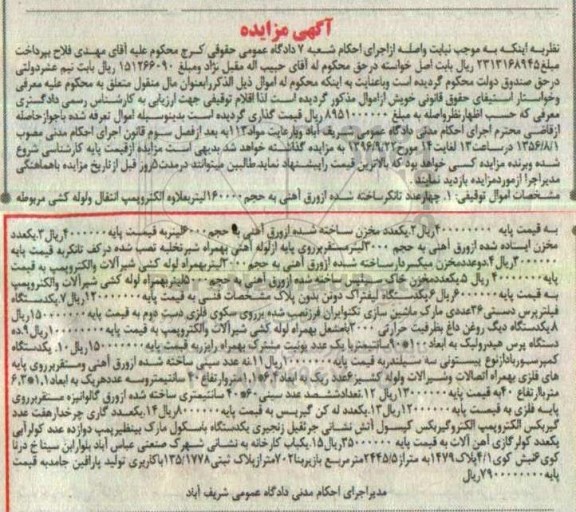 آگهی مزایده
نظریه اینکه به موجب نیابت واصله از اجرای احکام شعبه ۷ دادگاه عمومی حقوقی کرج محکوم علیه آقای مهدی فلاح بپرداخت
مبلغ ۲۳۱۳۱۶۸۹۴۵ ریال بابت اصل خواسته در حق محکوم له آقای حبیب اله مقبل نژاد ومبلغ ۱۵۱۲۶۶۰۹۰ ریال بابت نیم عشر دولتی
در حق صندوق دولت محکوم گردیده است وباعنایت به اینکه محکوم له اموال ذیل الذکر رابعنوان مال منقول متعلق به محکوم علیه معرفی
وخواستار استیفای حقوق قانونی خویش ازاموال مذکور گردیده است لذا اقلام توقیفی جهت ارزیابی به کارشناس رسمی دادگستری
معرفی که حسب اظهارنظر واصله به مبلغ ۸۹۵۱۰۰۰۰۰۰ ریال قیمت گذاری گردیده است بدینوسیله اموال تعرفه شده باجواز حاصله
از قاضی محترم اجرای احکام مدنی دادگاه عمومی شریف آباد وبارعایت مواد ۱۱۳ به بعد از فصل سوم قانون اجرای احکام مدنی مصوب
۱۳۵۶/۸/۱ درساعت ۱۳ لغایت ۱۴ مورخ ۱۳۹۶/۹/۲۲ به مزایده گذاشته خواهد شد بدیهی است مزایده ازقیمت پایه کارشناسی شروع
شده وبرنده مزایده کسی خواهد بود که بالاترین قیمت راپیشنهاد نماید طالبین میتوانند درمدت ۵ روز قبل از تاریخ مزایده باهماهنگی
مدیراجرا از مورد مزایده بازدید نمایند.
مشخصات اموال توقیفی: ۱. چهارعدد تانکر ساخته شده ازورق آهنی به حجم ۱۶۰۰۰۰ لیتر بعلاوه الکتروپمپ انتقال ولوله کشی مربوطه
به قیمت پایه ریال ۲.یکعدد مخزن ساخته شده ازورق آهنی به حجم ۶۰۰۰ لیتر به قیمت پایه ریال ۳.یکعدد
مخزن ایستاده شده ازورق آهنی به حجم ۳۰۰۰ لیتر مستقر برروی پایه ازلوله آهنی بهمراه شیر تخلیه نصب شده در کف تانکر به قیمت پایه
ریال ۴.دوعدد مخزن میکسردار ساخته شده ازورق آهنی به حجم لیتر بهمراه لوله کشی شیرآلات والکتروپمپ به قیمت
پایه ریال ۵.یکعدد مخزن خاک سیلیس ساخته شده ازورق آهنی به حجم لیتر بهمراه لوله کشی شیرآلات والکتروپمپ
به قیمت پایه ریال ۶.یکدستگاه لیفتراک دوتن بدون پلاک مشخصات فنی به قیمت پایه ریال ۷.یکدستگاه
فیلتر پرس دستی ۳۶ عددی مارک ماشین سازی تکنوایران فرز نصب شده برروی سکوی فلزی دست دوم به قیمت پایه ریال
۸.یکدستگاه دیگ روغن داغ بظرفیت حرارتی ۳۰۰۰ بامشعل بهمراه لوله کشی شیرآلات والکتروپمپ به قیمت پایه ریال ۹.ده
دستگاه پرس هیدرولیک به ابعاد ۱۰۰*۹۰ سانتیمتر با یک عدد یونیت مشترک بهمراه رایزر به قیمت پایه ریال ۱۰. یکدستگاه
کمپرسور باداژنوع پیستونی سه سیلندر به قیمت پایه ریال ۱۱.نه عدد سینی ساخته شده ازورق آهنی ومستقر برروی پایه
های فلزی بهمراه اتصالات وشیرآلات ولوله کشی
متر با ارتفاع ۴۰ به قیمت پایه ریال ۱۲.تعداد ششصد عدد سینی ۶۰*۴۰ سانتیمتری ساخته شده ازورق گالوانیزه مستقر برروی
پایه فلزی به قیمت پایه ریال ۱۳.یکعدد له کن گیربکس به قیمت پایه ریال ۱۴.یکعدد گاری چرخدار هفت عدد
گیربکس الکتروپمپ الکتروگیربکس کپسول آتش نشانی جرثقیل زنجیری یکدستگاه باسکول مارک بینظیر پمپ دوازده عدد کولر آبی
یکعدد کولر گازی آهن آلات به قیمت پایه ریال ۱۵.یکباب کارخانه به نشانی شهرک صنعتی عباس آباد بلوار ابن سینا خ درنا
کوی ۶ نبش کوی ۴/۱ پلاک ۱۴۷۹ به متراژ ۲۴۴۵/۵ متر مربع بازیربنا ۷۰۲ متر از پلاک ثبتی ۱۳۵/۱۷۷۸ باکاربری تولید پارافین جامد به قیمت
پایه ریال
مدیر اجرای احکام مدنی دادگاه عمومی شریف آباد